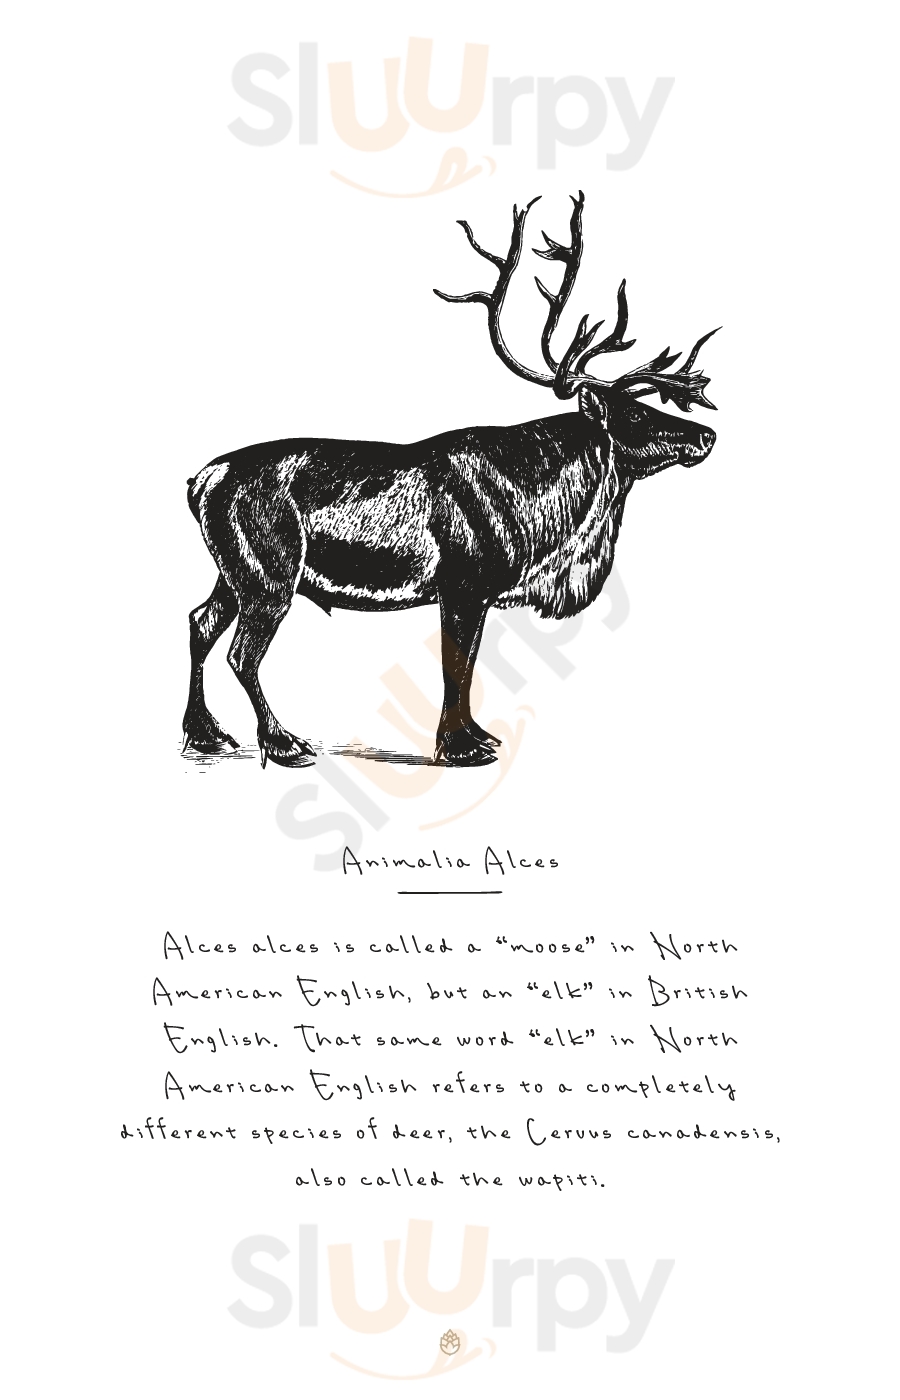 Sluurpy
Sluurpy
Animalia Alces
Alces alces is called a “moose” in North
American English, but an “elk” in British
English. That same word “elk” in North
American English refers to a completely
different species of deer, the Cervus canadensis,
also called the wapiti.
Sluurpy